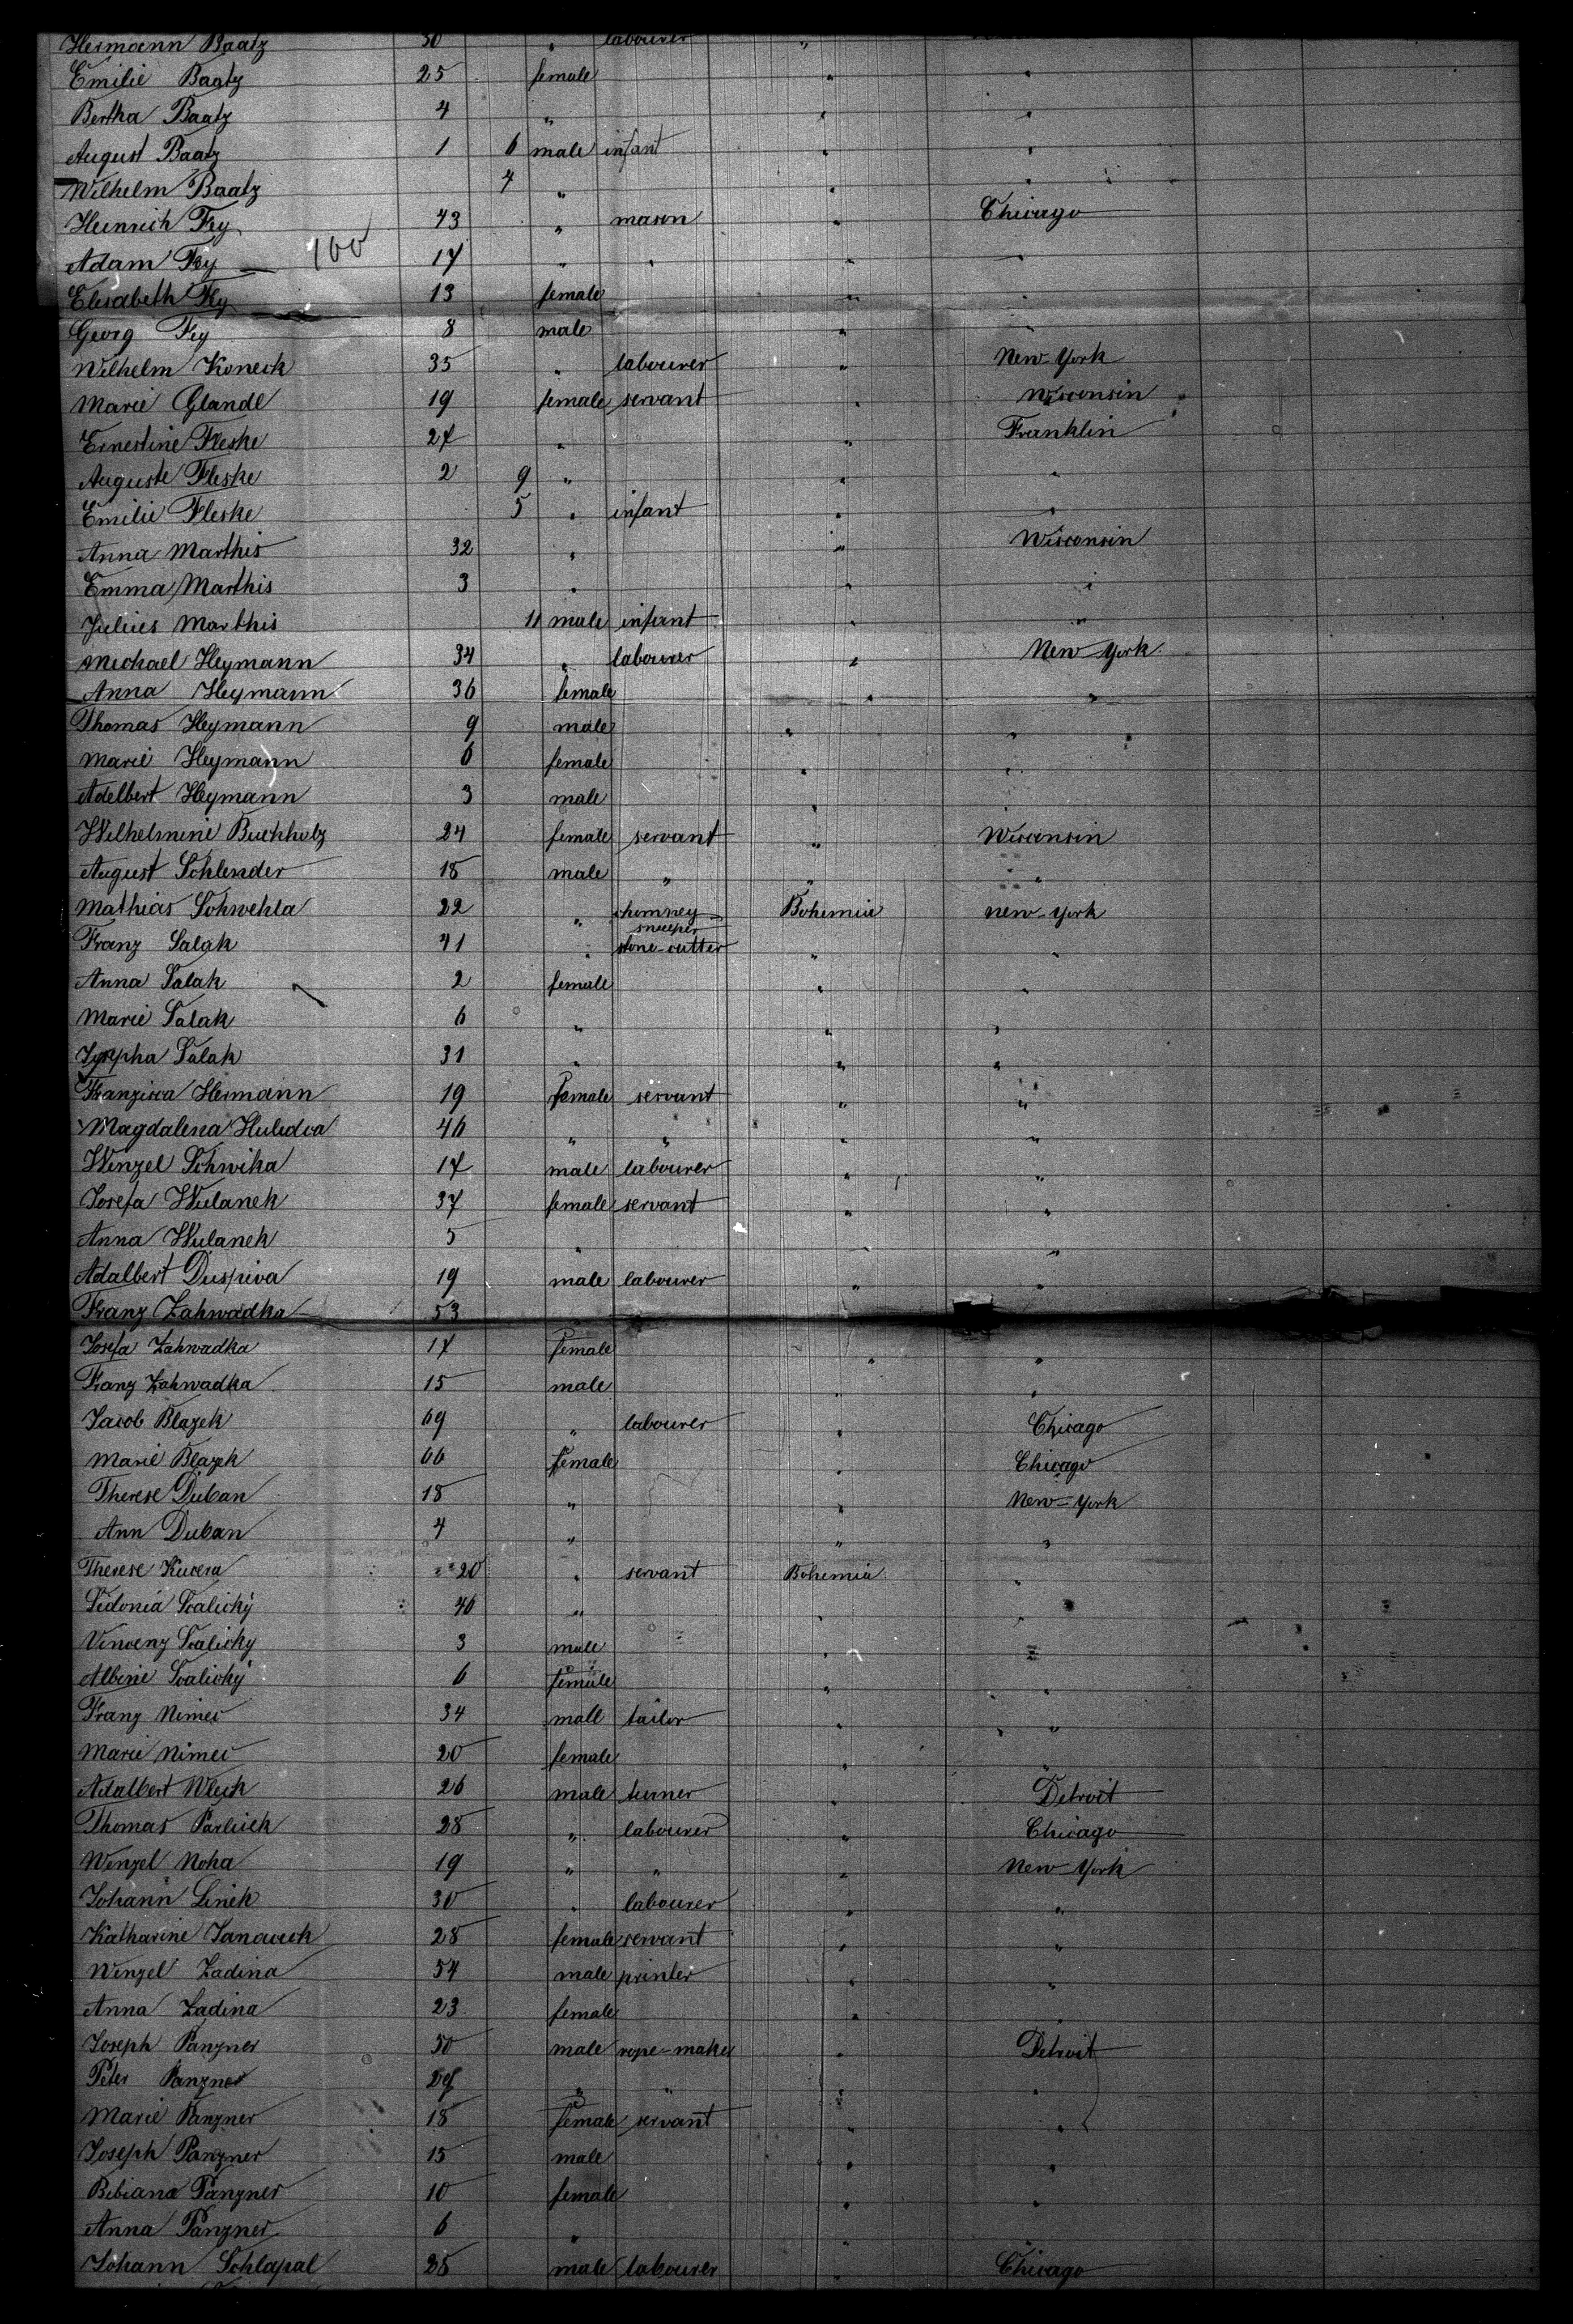 Hermann Baatz 30 " labourer "
Emilie Baatz 25 female " "
Bertha Baatz 4 " " "
August Baatz 1 6 male infant " "
Wilhelm Baatz 4 " " "
Heinrich Fey 43 " mason " Chicago
Adam Fey 100 17 " " " "
Elisabeth Fey 13 female " "
Georg Fey 8 male " "
Wilhelm Koneck 35 " labourer " New-York
Marie Glandl 19 female servant " Wisconsin
Ernestine Fleske 27 " " Franklin
Auguste Fleske 2 9 " " "
Emilie Fleske 5 " infant " "
Anna Marthis 32 " " Wisconsin
Emma Marthis 3 " " "
Julius Marthis 11 male infant " "
Michael Heymann 34 " labourer " New-York
Anna Heymann 36 female " "
Thomas Heymann 9 male " "
Marie Heymann 6 female " "
Adelbert Heymann 3 male " "
Wilhelmine Buchholz 24 female servant " Wisconsin
August Schlender 18 male " " "
Mathias Schwehla 22 " chimney Bohemia New-York
sweeper
Franz Salak 41 " stone-cutter " "
Anna Salak 2 female " "
Marie Salak 6 " " "
Salak 31 " " "
Franzisca Hermann 19 female servant " "
Magdalena Huledva 46 " " " "
Wenzel Schwika 17 male labourer " "
Josefa Wulanek 37 female servant " "
Anna Wulanek 5 " " "
Adalbert Duspiva 19 male labourer " "
Franz Zahwadka 53
Josefa Zahwadka 17 female " "
Franz Zahwadka 15 male " "
Jacob Blazek 69 " labourer " Chicago
Marie Blazek 66 female " Chicago
Therese Duban 18 " " New-York
Ann Duban 4 " " "
Therese Kucera 20 " servant Bohemia "
Sidonia Scalický 46 " " "
Vincenz Scalicky 3 male " "
Albine Scalický 6 female " "
Franz Nimec 34 male tailor " "
Marie Nimec 20 female " "
Adalbert Wlech 26 male turner " Detroit
Thomas Parlicek 28 " labourer " Chicago
Wenzel Noha 19 " " " New-York
Johann Linek 30 " labourer " "
Katharine Janoucek 28 female servant " "
Wenzel Zadina 54 male printer " "
Anna Zadina 23 female " "
Joseph Panzner 50 male rope-maker " Detroit
Peter Panzner " " " "
Marie Panzner 18 female servant " "
Joseph Panzner 15 male " "
Bibiana Panzner 10 female " "
Anna Panzner 6 " " "
Johann Schlapal 25 male labourer " Chicago